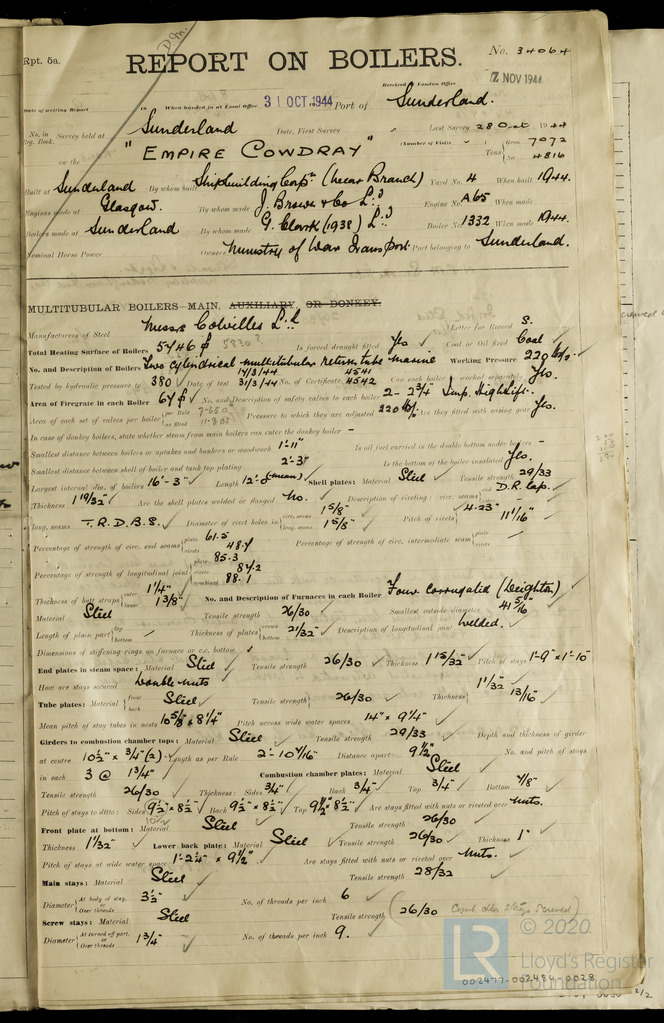 D.M.
Rpt. 5a.
REPORT ON BOILERS.
No. 34064
Received at London Office 7 NOV 1944
Date of writing Report 19 When handed in at Local Office 31 OCT. 1944 Port of Sunderland.
No. in Reg. Book. Survey held at Sunderland Date, First Survey Last Survey 28 Oct 1944
on the "EMPIRE COWDRAY" (Number of Visits ) Tons Gross 7072 Net 4816
Built at Sunderland By whom built Shipbuilding Corpn (Wear Branch) Yard No. 4 When built 1944.
Engines made at Glasgow. By whom made J. Brown & Co Ld Engine No. A65 When made
Boilers made at Sunderland By whom made G. Clark (1938) Ld Boiler No. 1332 When made 1944.
Nominal Horse Power Owners Ministry of War Transport Port belonging to Sunderland.
MULTITUBULAR BOILERS MAIN, AUXILIARY, OR DONKEY.
Manufacturers of Steel Messrs Colvilles Ld Letter for Record S.
Total Heating Surface of Boilers 5746 5830? Is forced draught fitted Yes Coal or Oil fired Coal
No. and Description of Boilers Two cylindrical multitubular return tube marine Working Pressure 220 lbs/
Tested by hydraulic pressure to 380 Date of test 14/3/44 31/3/44 No. of Certificate 4541 4542 Can each boiler be worked separately Yes.
Area of Firegrate in each Boiler 64 No. and Description of safety valves to each boiler 2 - 2 3/4 Imp. High Lift.
Area of each set of valves per boiler per Rule 7.650 as fitted 11.802 Pressure to which they are adjusted 220 lbs/ Are they fitted with easing gear Yes.
In case of donkey boilers, state whether steam from main boilers can enter the donkey boiler –
Smallest distance between boilers or uptakes and bunkers or woodwork 1'-11" Is oil fuel carried in the double bottom under boilers –
Smallest distance between shell of boiler and tank top plating 2'-3" Is the bottom of the boiler insulated Yes.
Largest internal dia. of boilers 16'-3" Length 12'-0" (mean) Shell plates: Material Steel Tensile strength 29/33
Thickness 1 19/32" Are the shell plates welded or flanged No. Description of riveting: circ. seams D.R. Lap.
long. seams T.R.D.B.S. Diameter of rivet holes in circ. seams 1 5/8" long. seams 1 5/8" Pitch of rivets 4.23" 11 1/16"
Percentage of strength of circ. end seams plate 61.5 rivets 48.4 Percentage of strength of circ. intermediate seam
Percentage of strength of longitudinal joint plate 85.3 rivets 87.2 combined 88.1
Thickness of butt straps outer 1 1/4" inner 1 3/8" No. and Description of Furnaces in each Boiler Four corrugated (Deighton)
Material Steel Tensile strength 26/30 Smallest outside diameter 41 5/16"
Length of plain part top bottom Thickness of plates crown bottom 21/32" Description of longitudinal joint Welded.
Dimensions of stiffening rings on furnace or c.c. bottom
End plates in steam space: Material Steel Tensile strength 26/30 Thickness 1 15/32" Pitch of stays 1'-9" x 1'-10"
How are stays secured Double nuts
Tube plates: Material front back Steel Tensile strength 26/30 Thickness 1 1/32" 13/16"
Mean pitch of stay tubes in nests 10 5/8 x 8 1/4" Pitch across wide water spaces 14" x 9 1/4"
Girders to combustion chamber tops: Material Steel Tensile strength 29/33 Depth and thickness of girder
at centre 10 1/2" x 3/4" (2) Length as per Rule 2'-10 7/16" Distance apart 9 1/2" No. and pitch of stays
in each 3 @ 1 3/4" Combustion chamber plates: Material Steel
Tensile strength 26/30 Thickness: Sides 3/4" Back 3/4" Top 3/4" Bottom 7/8"
Pitch of stays to ditto: Sides 9 1/2" x 8 1/2" Back 9 1/2" x 8 1/2" Top 9 1/2" x 8 1/2" Are stays fitted with nuts or riveted over Nuts.
Front plate at bottom: Material Steel Tensile strength 26/30
Thickness 1 1/32" Lower back plate: Material Steel Tensile strength 26/30 Thickness 1"
Pitch of stays at wide water space 1'-2 1/4" x 9 1/2" Are stays fitted with nuts or riveted over Nuts.
Main stays: Material Steel Tensile strength 28/32
Diameter At body of stay, or Over threads 3 1/2" No. of threads per inch 6
Screw stays: Material Steel Tensile strength 26/30 (Comb. chbr stays screwed)
Diameter At turned off part, or Over threads 1 3/4" No. of threads per inch 9.
© 2020
LR Lloyd's Register Foundation
002477-002484-0028
2/2